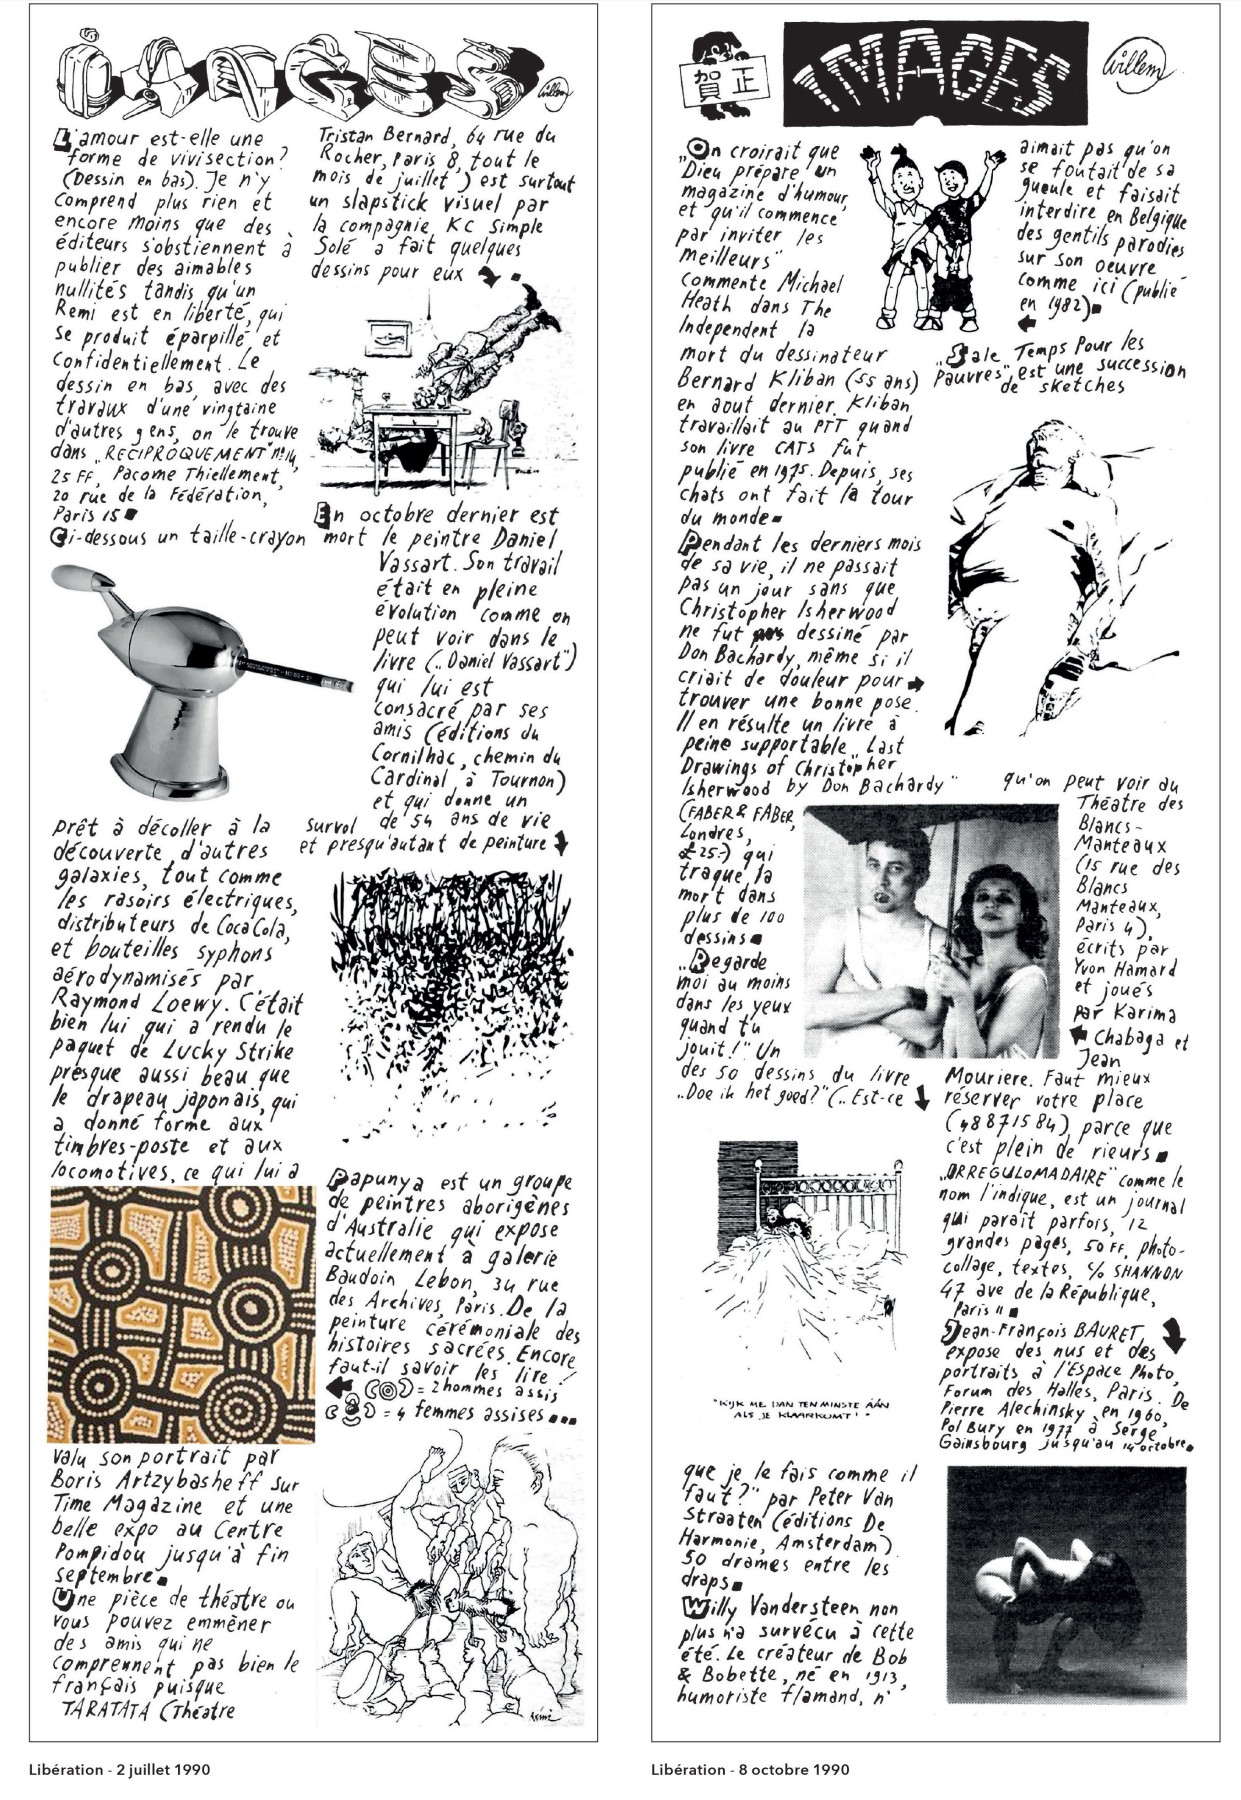 IMAGES
Willem
L'amour est-elle une
forme de vivisection?
(Dessin en bas). Je n'y
comprend plus rien et
encore moins que des
éditeurs s'obstiennent à
publier des aimables
nullités tandis qu'un
Remi est en liberté, qui
se produit éparpillé, et
confidentiellement. Le
dessin en bas, avec des
travaux d'une vingtaine
d'autres gens, on le trouve
dans „RECIPROQUEMENT" n°14,
25 FF, Pacome Thiellement,
20 rue de la Fédération,
Paris 15■
Ci-dessous un taille-crayon
prêt à décoller à la
découverte d'autres
galaxies, tout comme
les rasoirs électriques,
distributeurs de CocaCola,
et bouteilles syphons
aérodynamisés par
Raymond Loewy. C'était
bien lui qui a rendu le
paquet de Lucky Strike
presque aussi beau que
le drapeau japonais, qui
a donné forme aux
timbres-poste et aux
locomotives, ce qui lui a
valu son portrait par
Boris Artzybasheff sur
Time Magazine et une
belle expo au Centre
Pompidou jusqu'à fin
septembre■
Une pièce de théatre ou
vous pouvez emmèner
des amis qui ne
comprennent pas bien le
français puisque
TARATATA (Théatre
Tristan Bernard, 64 rue du
Rocher, Paris 8, tout le
mois de juillet) est surtout
un slapstick visuel par
la compagnie KC Simple
Solé a fait quelques
dessins pour eux ■
En octobre dernier est
mort le peintre Daniel
Vassart. Son travail
était en pleine
évolution comme on
peut voir dans le
livre („Daniel Vassart")
qui lui est
consacré par ses
amis (éditions du
Cornilhac, chemin du
Cardinal à Tournon)
et qui donne un
survol de 54 ans de vie
et presqu'autant de peinture
Papunya est un groupe
de peintres aborigènes
d'Australie qui expose
actuellement à galerie
Baudoin Lebon, 34 rue
des Archives, Paris. De la
peinture cérémoniale des
histoires sacrées. Encore
faut-il savoir les lire!
= 2 hommes assis
= 4 femmes assises...
Rémi
Libération - 2 juillet 1990
賀正
IMAGES
Willem
„On croirait que
Dieu prépare un
magazine d'humour,
et qu'il commence
par inviter les
meilleurs"
commente Michael
Heath dans The
Independent la
mort du dessinateur
Bernard Kliban (55 ans)
en aout dernier. Kliban
travaillait au PTT quand
son livre CATS fut
publié en 1975. Depuis, ses
chats ont fait la tour
du monde■
Pendant les derniers mois
de sa vie, il ne passait
pas un jour sans que
Christopher Isherwood
ne fut dessiné par
Don Bachardy, même si il
criait de douleur pour
trouver une bonne pose.
Il en résulte un livre à
peine supportable „Last
Drawings of Christopher
Isherwood by Don Bachardy"
(FABER & FABER,
Londres,
£25.-) qui
traque la
mort dans
plus de 100
dessins■
„Regarde
moi au moins
dans les yeux
quand tu
jouit!" Un
des 50 dessins du livre
„Doe ik het goed?" („Est-ce
"KIJK ME DAN TEN MINSTE ÁÁN
ALS JE KLAARKOMT!"
que je le fais comme il
faut?" par Peter Van
Straaten (éditions De
Harmonie, Amsterdam)
50 drames entre les
draps■
Willy Vandersteen non
plus n'a survécu à cette
été. Le créateur de Bob
& Bobette, né en 1913,
humoriste flamand, n'
aimait pas qu'on
se foutait de sa
gueule et faisait
interdire en Belgique
des gentils parodies
sur son oeuvre
comme ici (publié
en 1982)■
„Sale Temps Pour les
Pauvres" est une succession
de sketches
qu'on peut voir au
Théatre des
Blancs-
Manteaux
(15 rue des
Blancs
Manteaux,
Paris 4),
écrits par
Yvon Hamard
et joués
par Karima
Chabaga et
Jean
Mouriere. Faut mieux
réserver votre place
(48871584) parce que
c'est plein de rieurs■
„ORREGULOMADAIRE" comme le
nom l'indique, est un journal
qui paraît parfois, 12
grandes pages, 50 FF, photo-
collage, textes, c/o SHANNON
47 ave de la République,
Paris 11■
Jean-François BAURET
expose des nus et des
portraits à l'Espace Photo,
Forum des Halles, Paris. De
Pierre Alechinsky en 1960,
Pol Bury en 1977 à Serge
Gainsbourg jusqu'au 14 octobre■
Libération - 8 octobre 1990